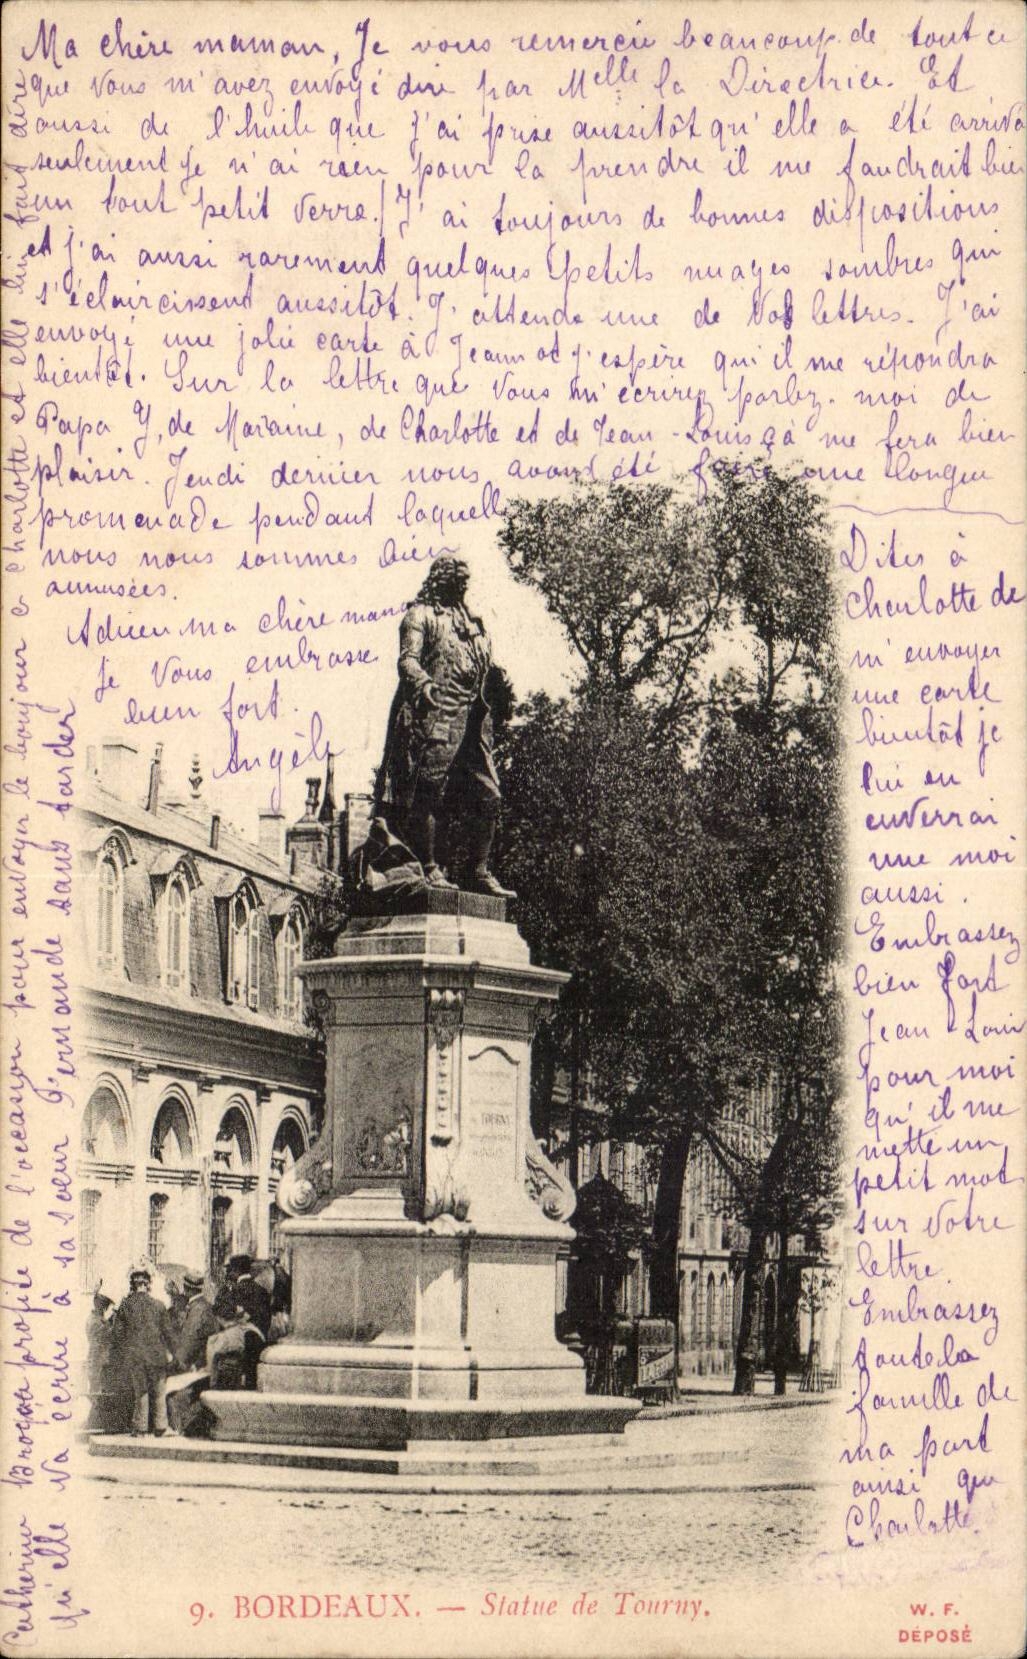 Ma chère maman, Je vous remercie beaucoup de tout ce
que Vous m'avez envoyé dire par Melle la Directrice. Et
aussi de l'huile que j'ai prise aussitôt qu'elle a été arrivé
seulement je n'ai rien pour la prendre il me faudrait bien
un tout petit verre! J'ai toujours de bonnes dispositions
et j'ai aussi rarement quelques petits nuages sombres qui
s'éclaircissent aussitôt. J'attends une de Vos lettres. J'ai
envoyé une jolie carte à Jeannot j'espère qu'il me répondra
bientôt. Sur la lettre que Vous m'écrirez parlez-moi de
Papa Y, de Maraine, de Charlotte et de Jean-Louis çà me fera bien
plaisir. Jeudi dernier nous avons été faire une longue
promenade pendant laquelle
nous nous sommes bien
amusées.
Adieu ma chère maman
Je Vous embrasse
bien fort.
Angèle
Dites à
Charlotte de
m'envoyer
une carte
bientôt je
lui en
enverrai
une moi
aussi.
Embrassez
bien fort
Jean Louis
pour moi
qu'il me
mette un
petit mot
sur Votre
lettre.
Embrassez
toute la
famille de
ma part
ainsi que
Charlotte.
Catherine profite de l'occasion pour envoyer le bonjour à Charlotte et elle lui fait dire
qu'elle Va écrire à sa sœur Fernande sans tarder
9. BORDEAUX. — Statue de Tourny.
W. F.
DÉPOSÉ
TOURNY